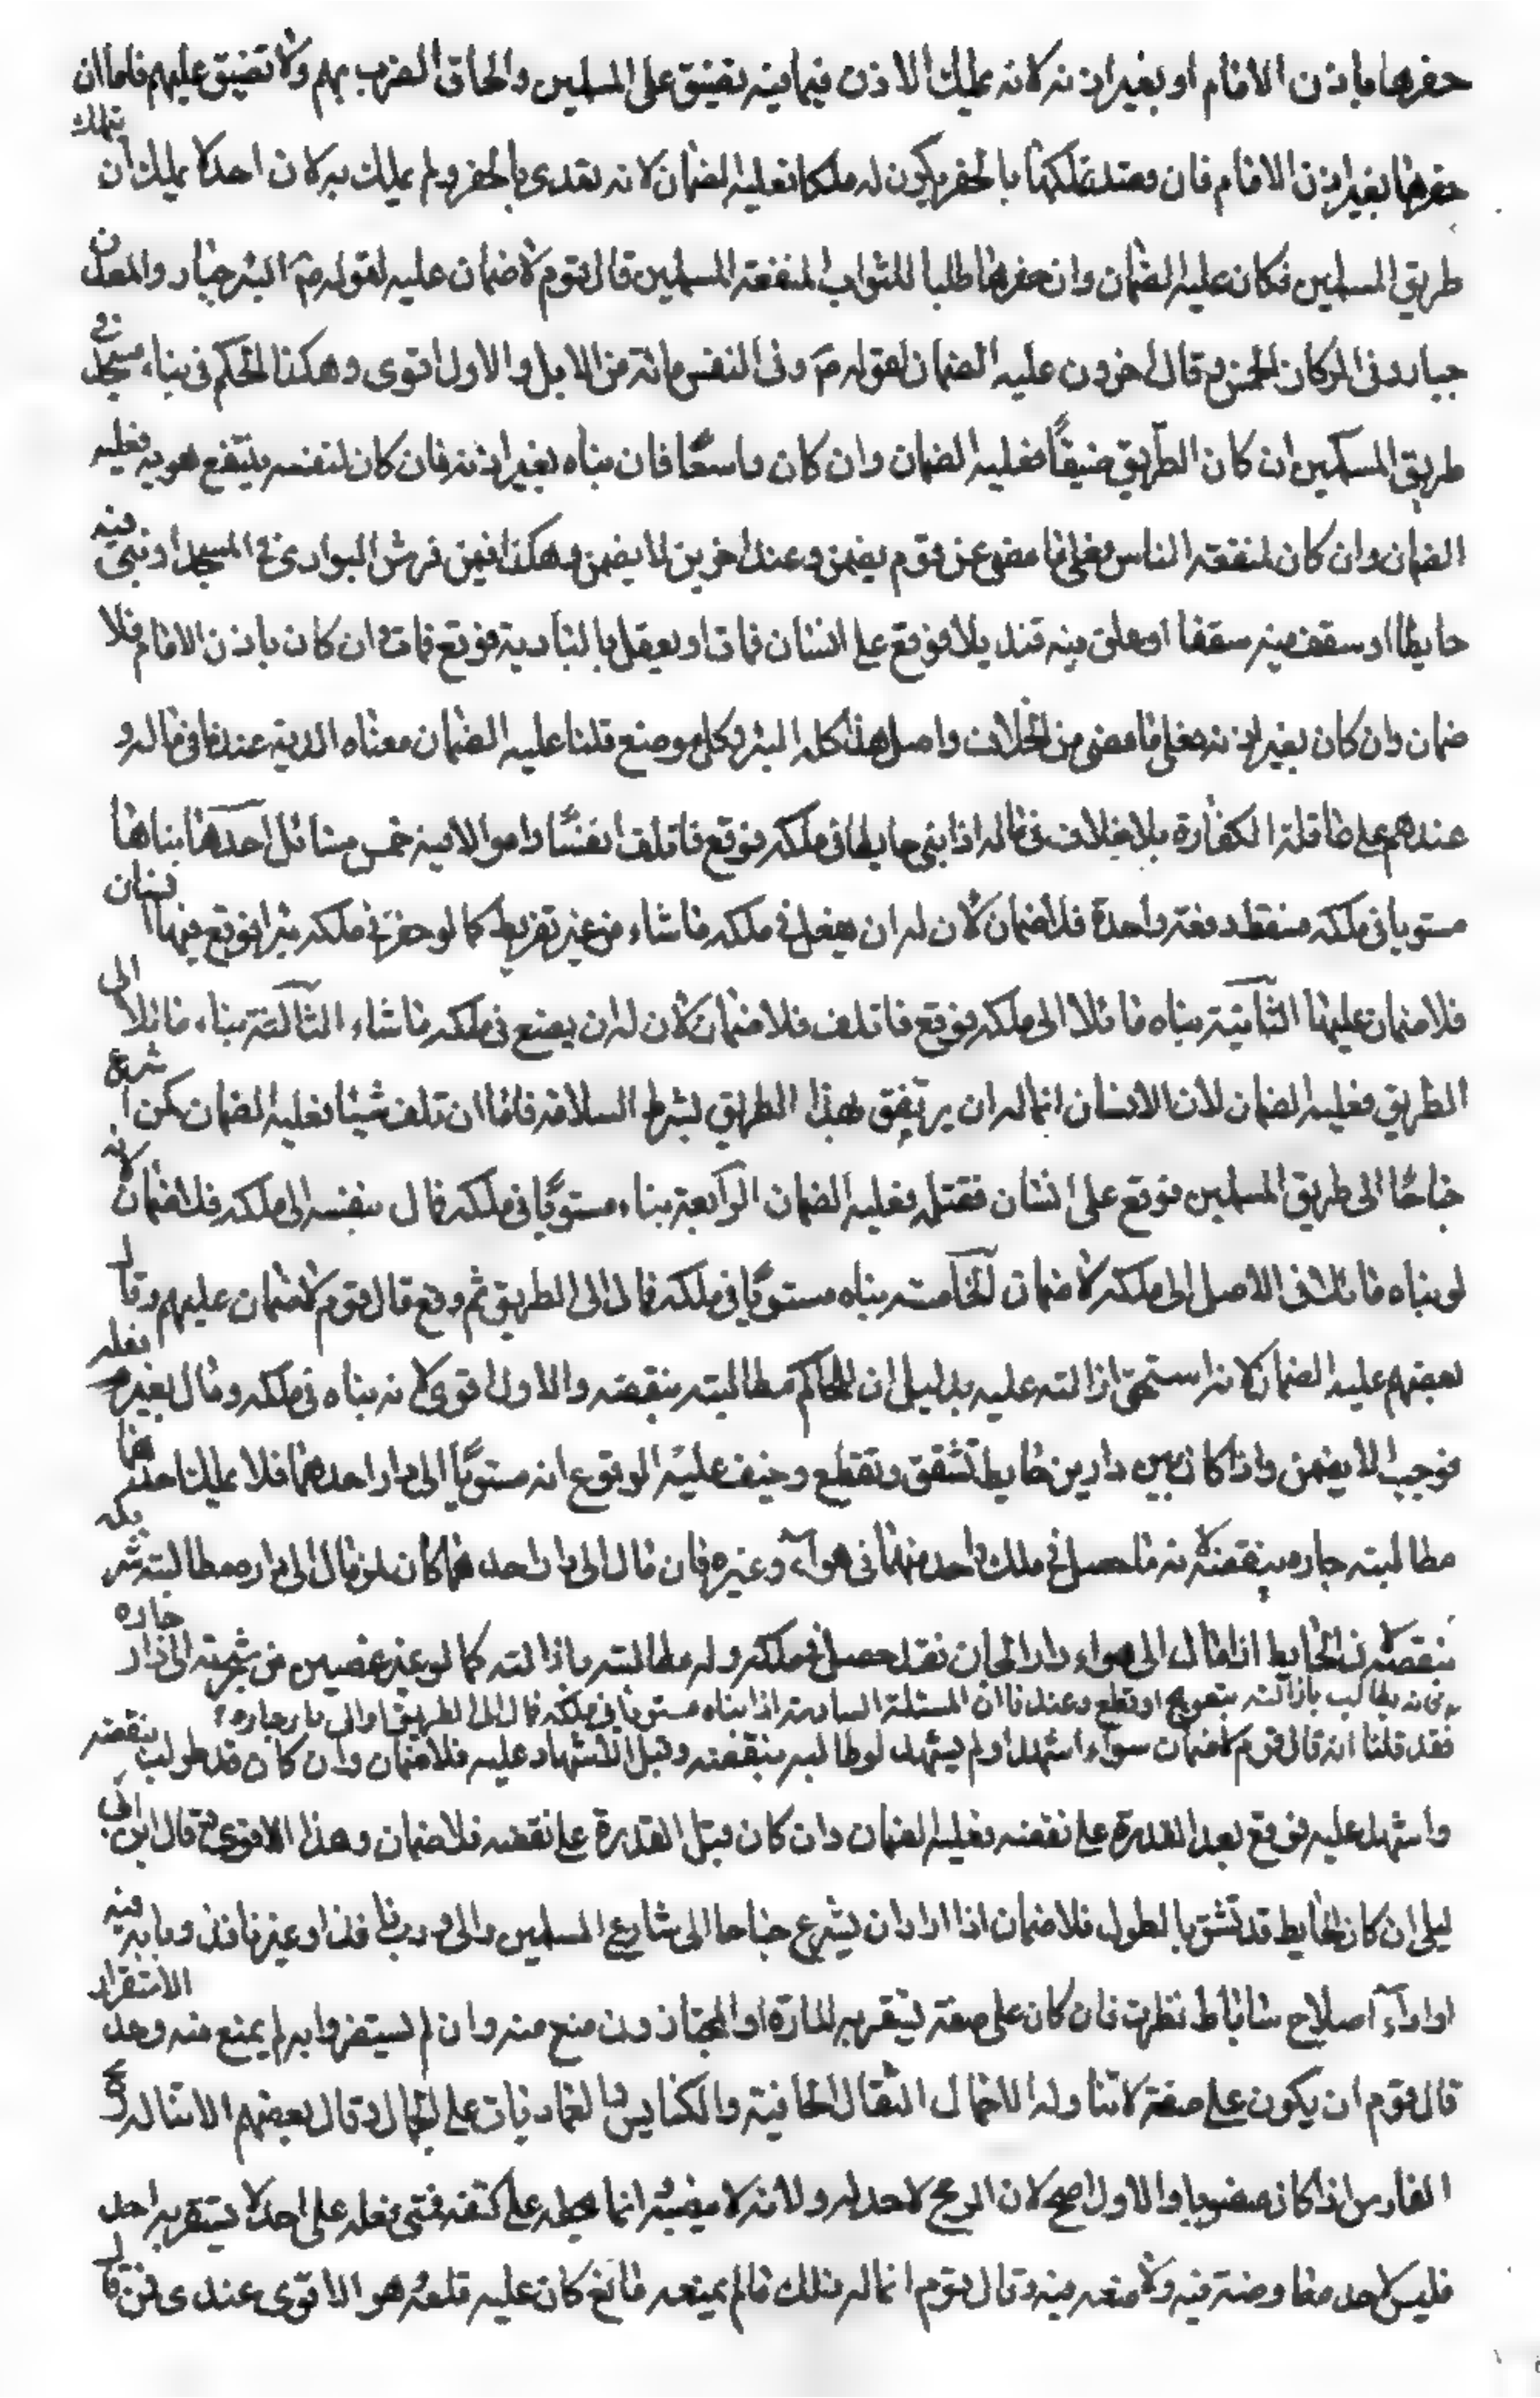 حفرها باذن الامام او بغير اذنه لانه يملك الاذن فيما فيه تضييق على المسلمين والحاق الضرب بهم ولا تضييق عليهم فاما ان
حفرها بغير اذن الامام فان قصد تملكها بالحفر ليكون له ملكا فعليه الضمان لانه تعدى بالحفر ولم يملك به لان احدا لا يملك ان يتملك
طريق المسلمين فكان عليه الضمان وان حفرها طلبا للثواب لمنفعة المسلمين قال قوم لا ضمان عليه لقوله ص البئر جبار والمعدن
جبار وفى الركاز الخمس وقال اخرون عليه الضمان لقوله ص وفى النفس مائة من الابل والاول اقوى وهكذا الحكم فى بناء مسجد فى
طريق المسلمين ان كان الطريق ضيقًا فعليه الضمان وان كان واسعًا فان بناه بغير اذنه فان كان لنفسه ينتفع هو به فعليه
الضمان وان كان لمنفعة الناس فعلى ما مضى عن قوم يضمن وعند اخرين لا يضمن وهكذا فيمن فرش البوارى فى المسجد او بنى فيه
حايطا او سقف فيه سقفا او علق فيه قنديلا فوقع على انسان فمات او يعقل بالبادية فوقع فمات ان كان باذن الامام فلا
ضمان وان كان بغير اذنه فعلى ما مضى من الخلاف واصل هذا كله البئر وكل موضع قلنا عليه الضمان معناه الدية عندنا فى ماله و
عندهم على عاقلة الكفارة بلا خلاف فى ماله اذا بنى حايطا فى ملكه فوقع فاتلف انفسًا واموالا فيه خمس مسائل احدها بناها
مستويا فى ملكه فسقط دفعة واحدة فلا ضمان لان له ان يفعل فى ملكه ما شاء من غير تفريط كما لو حفر فى ملكه بئرا فوقع فيها انسان
فلا ضمان عليها الثانية بناه مائلا الى ملكه فوقع فاتلف فلا ضمان لان له ان يصنع فى ملكه ما شاء الثالثة بناء مائلا الى
الطريق فعليه الضمان لان الانسان انما له ان يرتفق بهذا الطريق بشرط السلامة فاما ان تلف شيئا فعليه الضمان كمن اشرع
جناحًا الى طريق المسلمين فوقع على انسان فقتله فعليه الضمان الرابعة بناء مستويًا فى ملكه فمال بنفسه الى ملكه فلا ضمان لانه
لو بناه مائلا فى الاصل الى ملكه لا ضمان الخامسة بناه مستويًا فى ملكه فمال الى الطريق ثم وقع قال قوم لا ضمان عليهم وقال
بعضهم عليه الضمان لانه استحق ازالته عليه بدليل ان للحاكم مطالبته بنقضه والاول اقوى لانه بناه فى ملكه ومال بغير فعله
فوجب الا يضمن واذا كان بين دارين حايط تشقق وتقطع وخيف عليه الوقوع انه مستويًا الى دار احدهما فلا يملك احدهما
مطالبة جاره بنقضه لانه ما حصل فى ملك واحد منهما فى هواء وغيره فان مال الى دار احدهما كان لمن مال الى داره مطالبة شريكه
بنقضه فى الحايط اذا مال الى هواء دار الجار فقد حصل فى ملكه وله مطالبته بازالته كما لو عبر غصن من شجرته الى دار جاره
فانه يطالب بازالته بتعويج او قطع وعندنا ان المسئلة السادسة اذا بناه مستويا فى ملكه فمال الى الطريق او الى دار جاره
فقد قلنا انه قال قوم لا ضمان سواء اشهد او لم يشهد لو طالبه بنقضه وقبل الاشهاد عليه فلا ضمان وان كان قد طولب بنقضه
واشهد عليه فوقع بعد القدرة على نقضه فعليه الضمان وان كان قبل القدرة على نقضه فلا ضمان وهذا الاقوى وقال ابن ابى
ليلى ان كان الحايط قد تشق بالطول فلا ضمان اذا اراد ان يشرع جناحا الى شارع المسلمين والى درب نافذ او غير نافذ وبابه فيه
او اراد اصلاح ساباط نظرت فان كان على صفة يستقر به المارة او المجتاز ون منع منه وان لم يستضروا به لم يمنع منه وحد الاستقرار
قال قوم ان يكون على صفة لا تناوله الاحمال الثقال الجافية والكنايس بالعماديات على الجمال وقال بعضهم الا يناله
الفارس اذا كان منصوبا والاول اصح لان الرمح لاحد له ولانه لا ينصبه انما يحطه على كتفه فمتى فعله على احد لا يستقر به احد
فليس لاحد معارضته فيه ولا منعه منه وقال قوم انما له ذلك ما لم يمنعه مانع كان عليه قلعه هو الاقوى عندى فمن قال